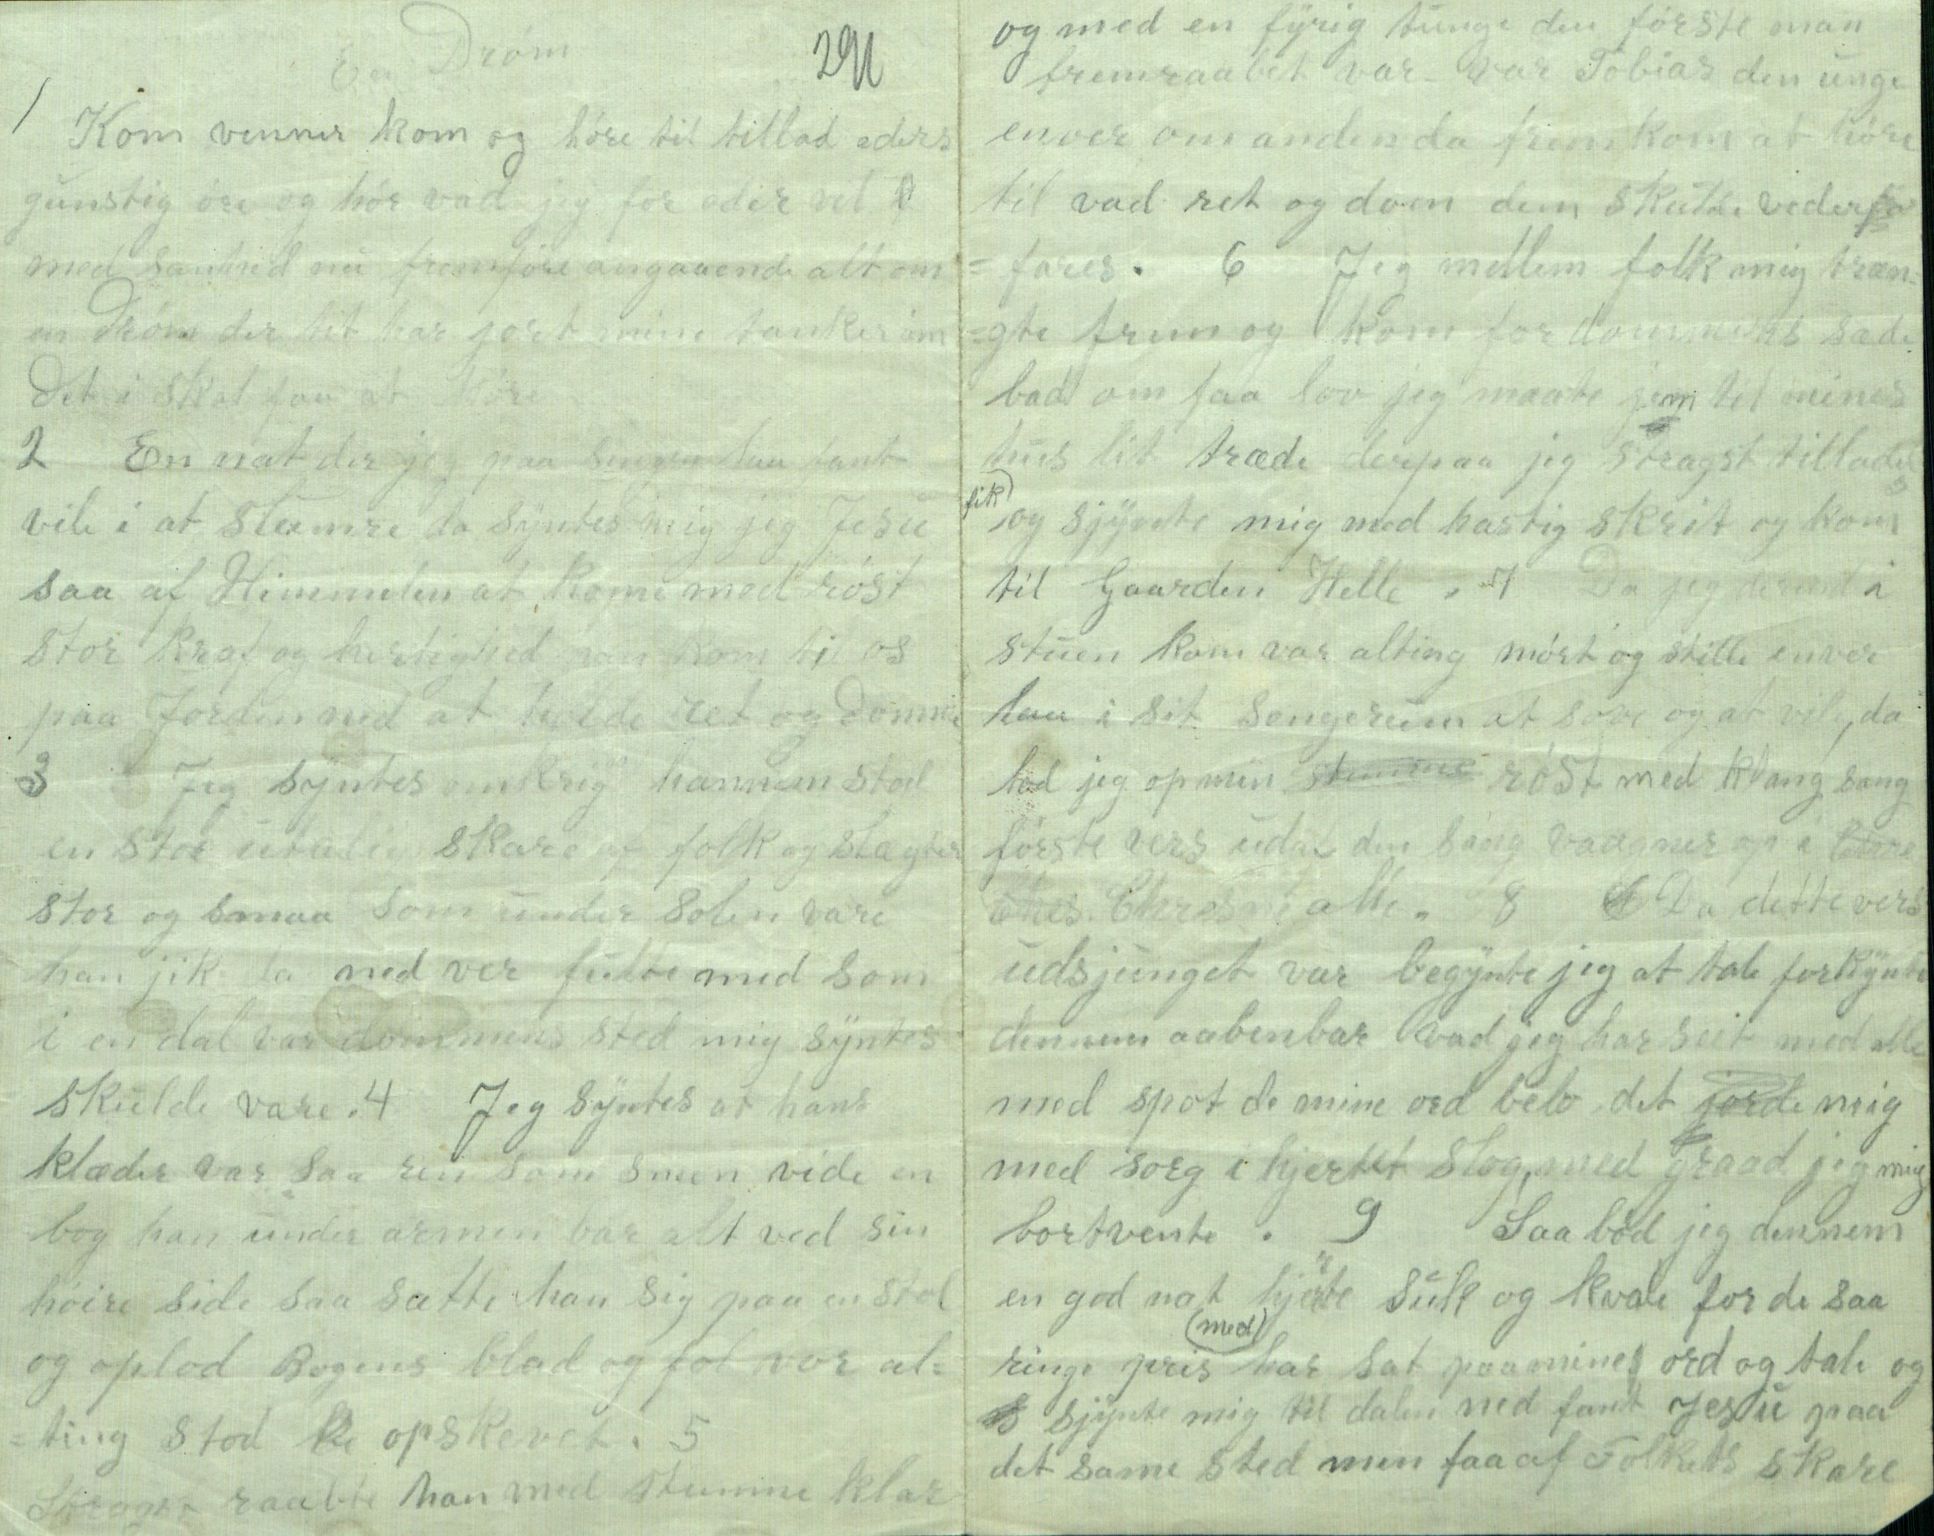 En Drøm
291
1 Kom venner kom og høre til tillad eders
gunstig øre og hør vad jeg for eder vel
med sanhed nu fremføre angaaende alt om
en Drøm der tit har jort mine tanker øm
Det i skal faa at høre
2 En nat der jeg paa sengen laa fant
vile i at slumre da syntes mig jeg Jesu
saa af Himmelen at kome med røst
stor kraf og herlighed han kom til os
paa Jorden ned at holde ret og domme
3 Jeg syntes omkring hannem stod
en stor utalig skare af folk og slægter
stor og smaa som under solen vare
han jik da ned ver fulte med som
i en dal var dommens sted mig syntes
skulde vare. 4 Jeg syntes at hans
klæder var saa ren som sneen vide en
bog han under armen bar alt ved sin
høire side saa satte han sig paa en stol
og oplod Bogens blad og fol vor al=
=ting stod opskevet. 5
Stragst raabte han med stemme klar
og med en fyrig tunge den første man
fremraabet var var Tobias den unge
enver om anden da frem kom at høre
til vad ret og dom dem skulde veder
=fares. 6 Jeg mellem folk mig træn=
=gte frem og kom for dommens sæde
bad om faa lov jeg maate jem til mines
hus lit træde derpaa jeg stragst tillades
fik og sjynte mig med hastig skrit og kom
til Gaarden Helle. 7 Da jeg derind i
stuen kom var alting mørt og stille enver
laa i sit sengerum at sove og at vile, da
lod jeg op min stemme røst med klang sang
første vers udaf den sang vaagner op i
Chresne alle. 8 Da dette vers
udsjunget var begynte jeg at tale forkynte
dennem aabenbar vad jeg har seit med alle
med spot de mine ord belo det jorde mig
med sorg i hjertet slog, med graad jeg mig
bortvente. 9 Saa bød jeg dennem
en god nat hjerte suk og kvale for de saa
ringe pris (med) har sat paa mines ord og tale og
sjynte mig til dalen ned fant Jesu paa
det same sted men faa af Folkets skare